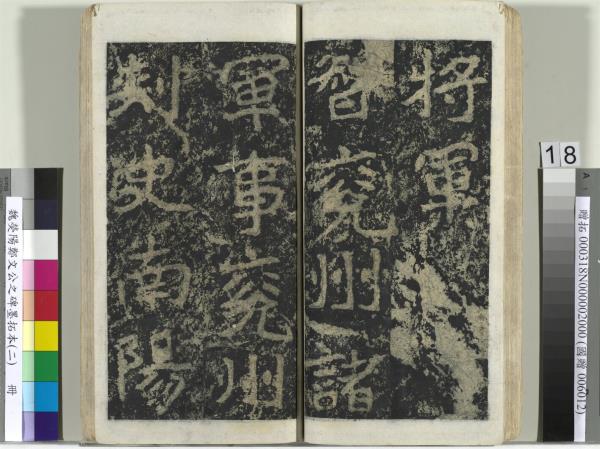 將軍
督兗州諸
軍事兗州
刾史南陽
18
魏滎陽鄭文公之碑墨拓本(二) 冊
贈拓 000318N000002000 (國贈 006012)